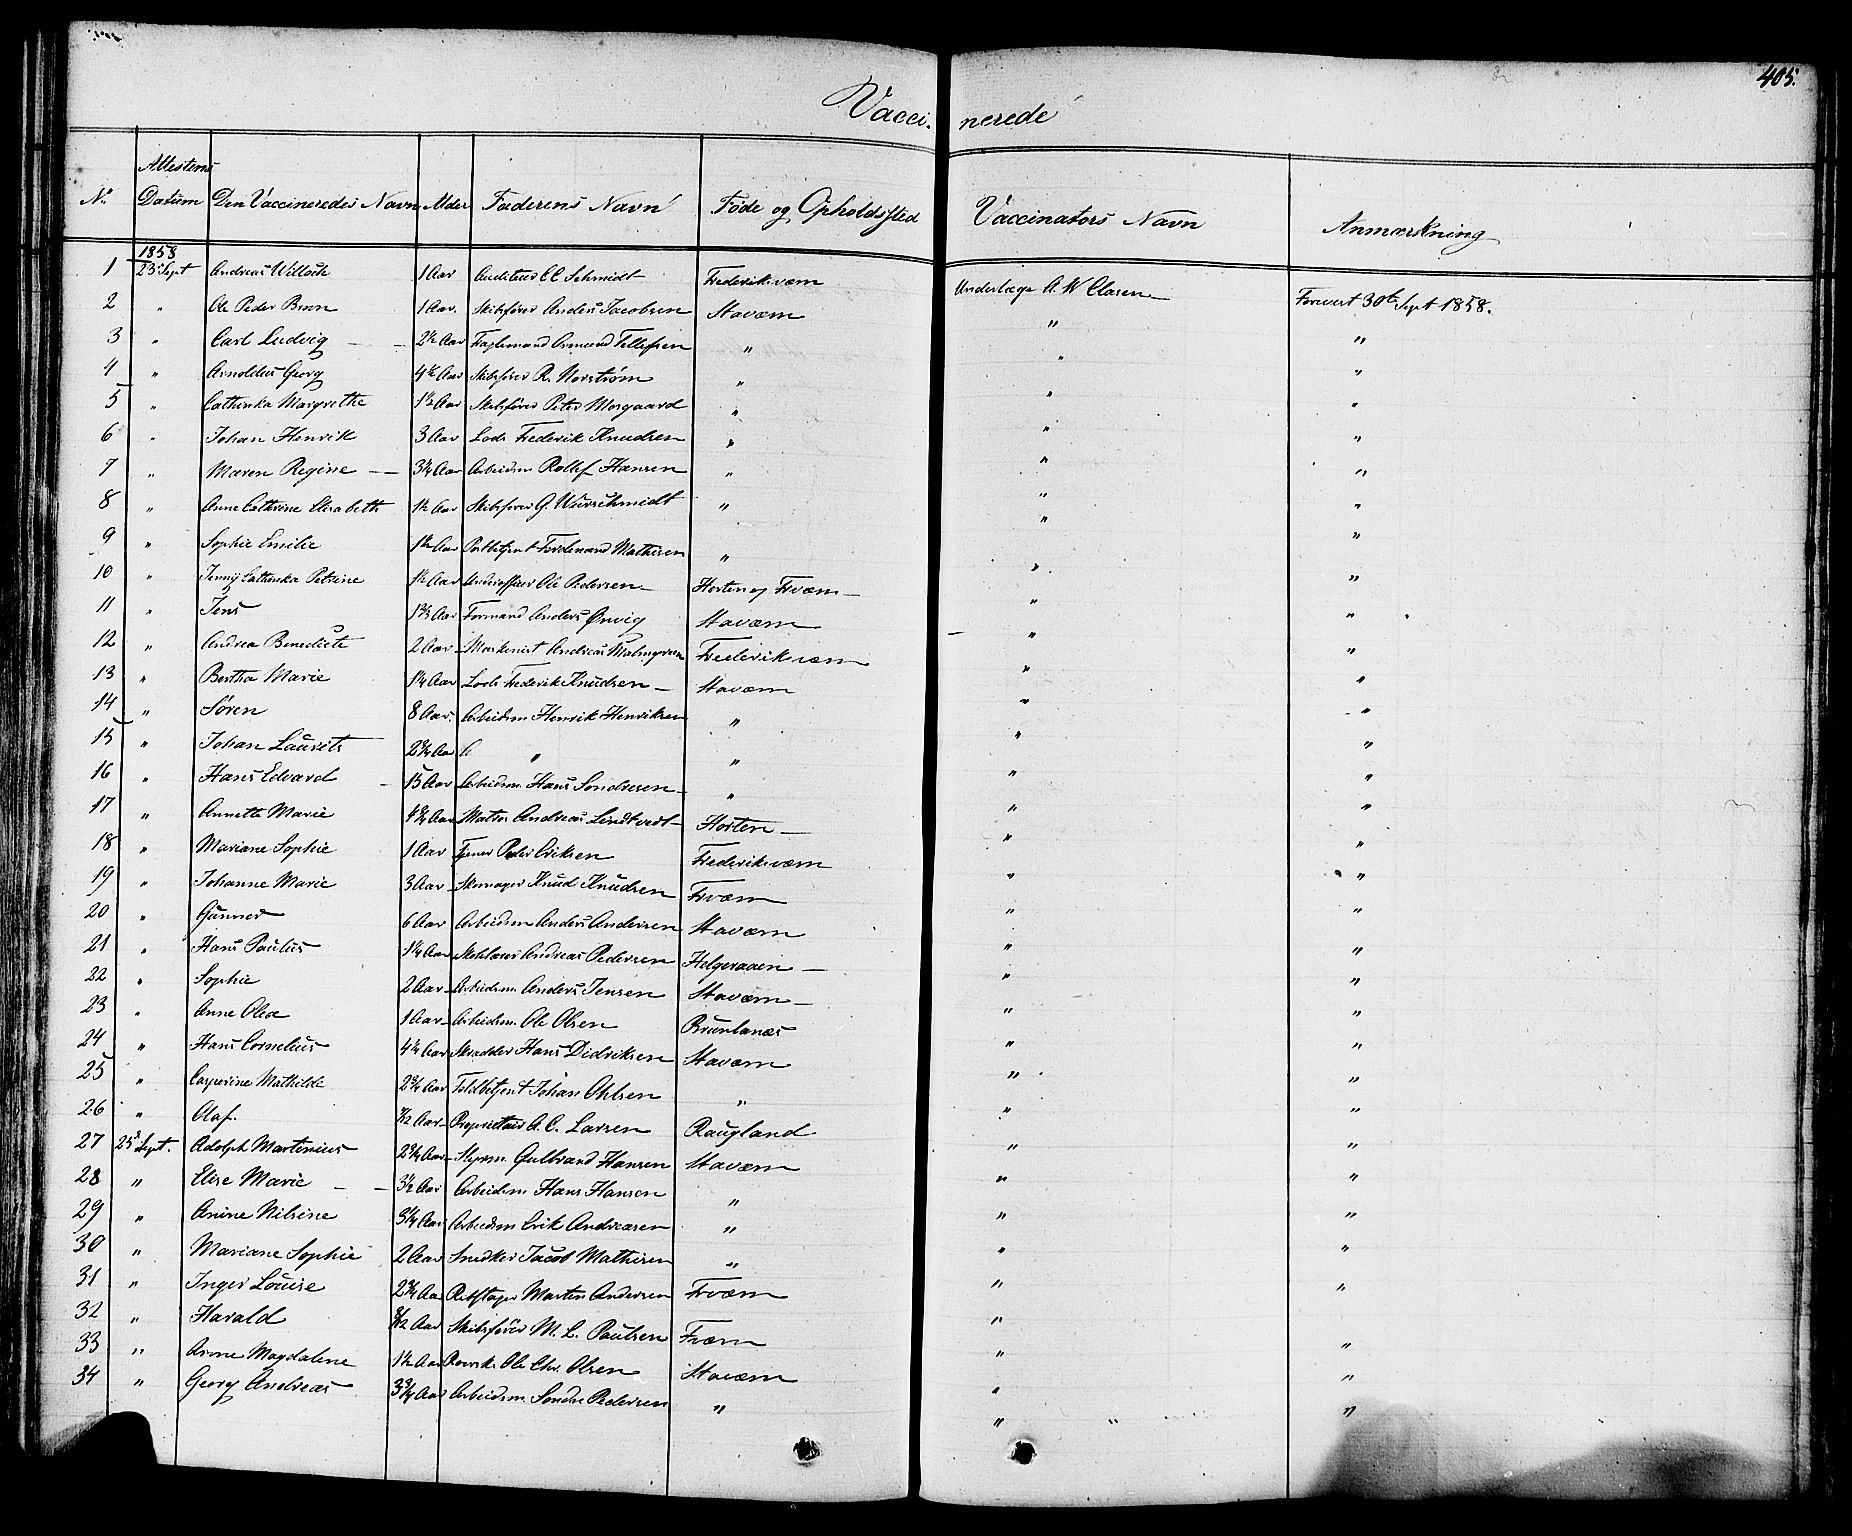 405.
Vaccinerede
No. Attestens Datum Den Vaccineredes Navn Alder Faderens Navn Føde og Opholdssted Vaccinators Navn Anmærkning
1858
1 23d Sept Andreas Willoch 1 Aar Auditeur CC Schmidt Frederiksværn Underlæge A. W Clasen Foreviist 30te Sept 1858.
2 " Ole Peder Bruun 1 Aar. Skibsfører Anders Jacobsen Staværn " "
3 " Carl Ludvig 2½ Aar Tellefsen " " "
4 " Arnoldus Georg 4½ Aar Skibsfører R. Norstrøm " " "
5 " Cathinka Margrethe 1½ Aar Skibsfører Peter Morgaard " " "
6 " Johan Henrik 3 Aar Lods Frederik Knudsen " " "
7 " Maren Regine 3¼ Aar Arbeidsm Rollef Hansen " " "
8 " Anne Cathrine Elisabeth 1½ Aar Skibsfører G. Wurschmidt " " "
9 " Sophie Emilie 1½ Aar Postbetjent Ferdinand Mathisen " " "
10 " Jenny Cathinka Petrine 1½ Aar Underofficer Ole Pedersen Horten og Fværn " "
11 " Jens 1¾ Aar Formand Anders Ørvig Staværn " "
12 " Andrea Benedicte 2 Aar Maskinist Andreas Malmgreen Frederiksværn " "
13 " Bertha Marie 1¼ Aar Lods Frederik Knudsen Staværn " "
14 " Søren 8 Aar. Arbeidsm Henrik Henriksen " " "
15 " Johan Laurits 2¾ Aar " " " "
16 " Hans Edvard 15 Aar Arbeidsm. Hans Sondresen " " "
17 " Annette Marie 4¾ Aar Matros Andreas Lindtvedt Horten " "
18 " Mariane Sophie 1 Aar Tjener Peder Eriksen Frederiksværn " "
19 " Johanne Marie 3 Aar Skomager Knud Knudsen Fværn " "
20 " Gunner 6 Aar Arbeidsm Anders Andersen Staværn " "
21 " Hans Paulus 1¼ Aar Andreas Pedersen Helgeraaen " "
22 " Sophie 2 Aar Arbeidsm. Anders Jensen Staværn " "
23 " Anne Olea 1 Aar Arbeidsm. Ole Olsen Brunlanæs " "
24 " Hans Cornelius 4½ Aar Skradder Hans Didriksen Staværn " "
25 " Casperine Mathilde 2¾ Aar Toldbetjent Johan Ohlsen " " "
26 " Olaf. Aar Proprietair A. C. Larsen Raugland " "
27 25d Sept. Adolph Martinius 2¾ Aar Styrm. Gulbrand Hansen Staværn " "
28 " Elise Marie 3½ Aar Arbeidsm Hans Hansen " " "
29 " Anine Nilsine 3¼ Aar Arbeidsm Erik Andreasen " " "
30 " Mariane Sophie 2 Aar Snedker Jacob Mathisen " " "
31 " Inger Louise 2¾ Aar Rebslager Morten Andersen Fværn " "
32 " Harald Aar Skibsfører M. L. Paulsen Fværn " "
33 " Anne Magdalene 1½ Aar Ole Chr. Olsen Staværn " "
34 " Georg Andreas 3¾ Aar Arbeidsm. Sondre Pedersen " " "